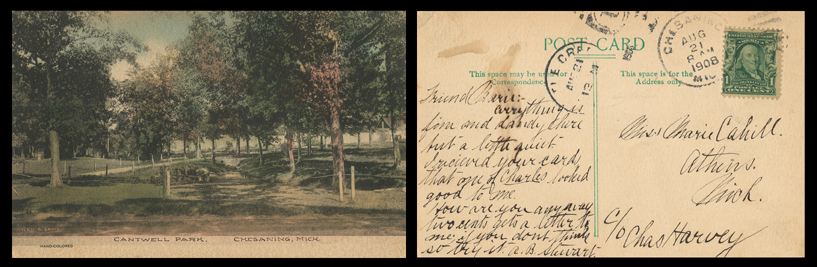 CANTWELL PARK, CHESANING, MICH.
HAND-COLORED
POST CARD
This space may be used for
Correspondence
This space is for the
Address only
CHESANING
AUG
21
8 AM
1908
MICH
AUG 21
12 M
Friend Marie:-
everything is
fine and dandy here
but a little quiet
I recieved your card,
that one of Charles looked
good to me.
How are you any away
two cents gets a letter to
me if you dont think
so try it. A.B. Stewart.
Miss Marie Cahill.
Athens.
Mich.
c/o Chas Harvey